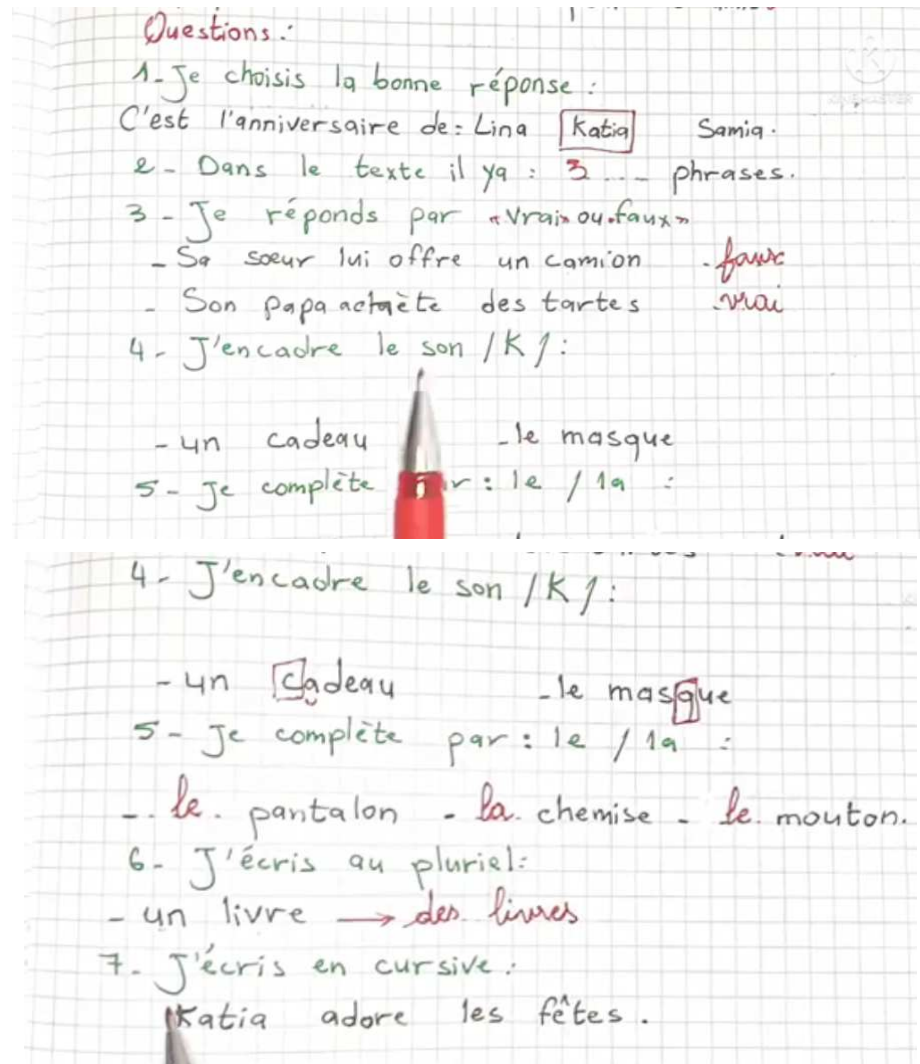 Questions:
1- Je choisis la bonne réponse :
C'est l'anniversaire de: Lina Katia Samia.
2- Dans le texte il ya : 3 ... phrases.
3- Je réponds par "vrai" ou "faux"
- Sa soeur lui offre un camion . faux
- Son papa achète des tartes . vrai
4- J'encadre le son /K/:
- un cadeau - le masque
5- Je complète : le / la :
4- J'encadre le son /K/:
- un cadeau - le masque
5- Je complète par : le / la :
- . le . pantalon - la . chemise - le . mouton.
6- J'écris au pluriel:
- un livre → des livres
7- J'écris en cursive:
Katia adore les fêtes.